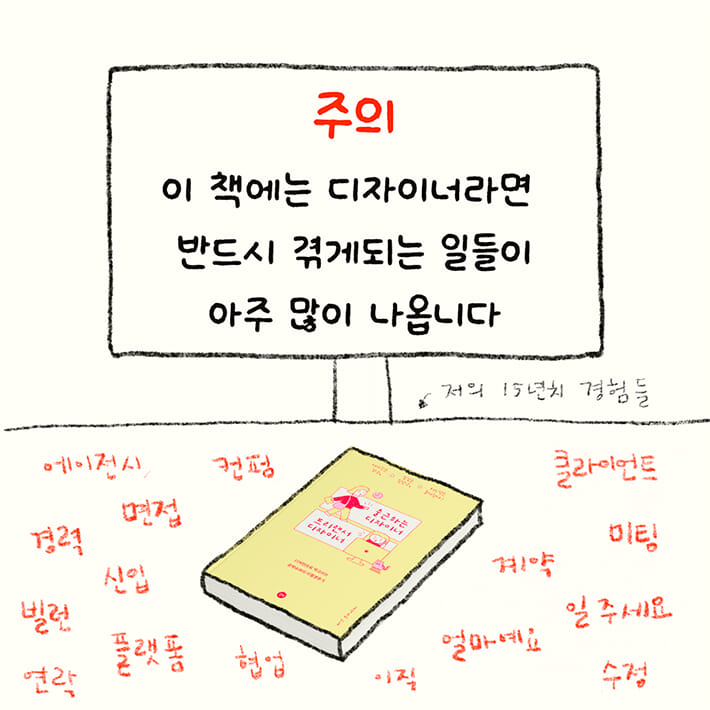 주의
이 책에는 디자이너라면
반드시 겪게되는 일들이
아주 많이 나옵니다
저의 15년치 경험들
에이전시
컨펌
클라이언트
면접
경력
미팅
계약
신입
빌런
일 주세요
플랫폼
얼마예요
협업
연락
이직
수정
출근하는
디자이너
프리랜서
디자이너